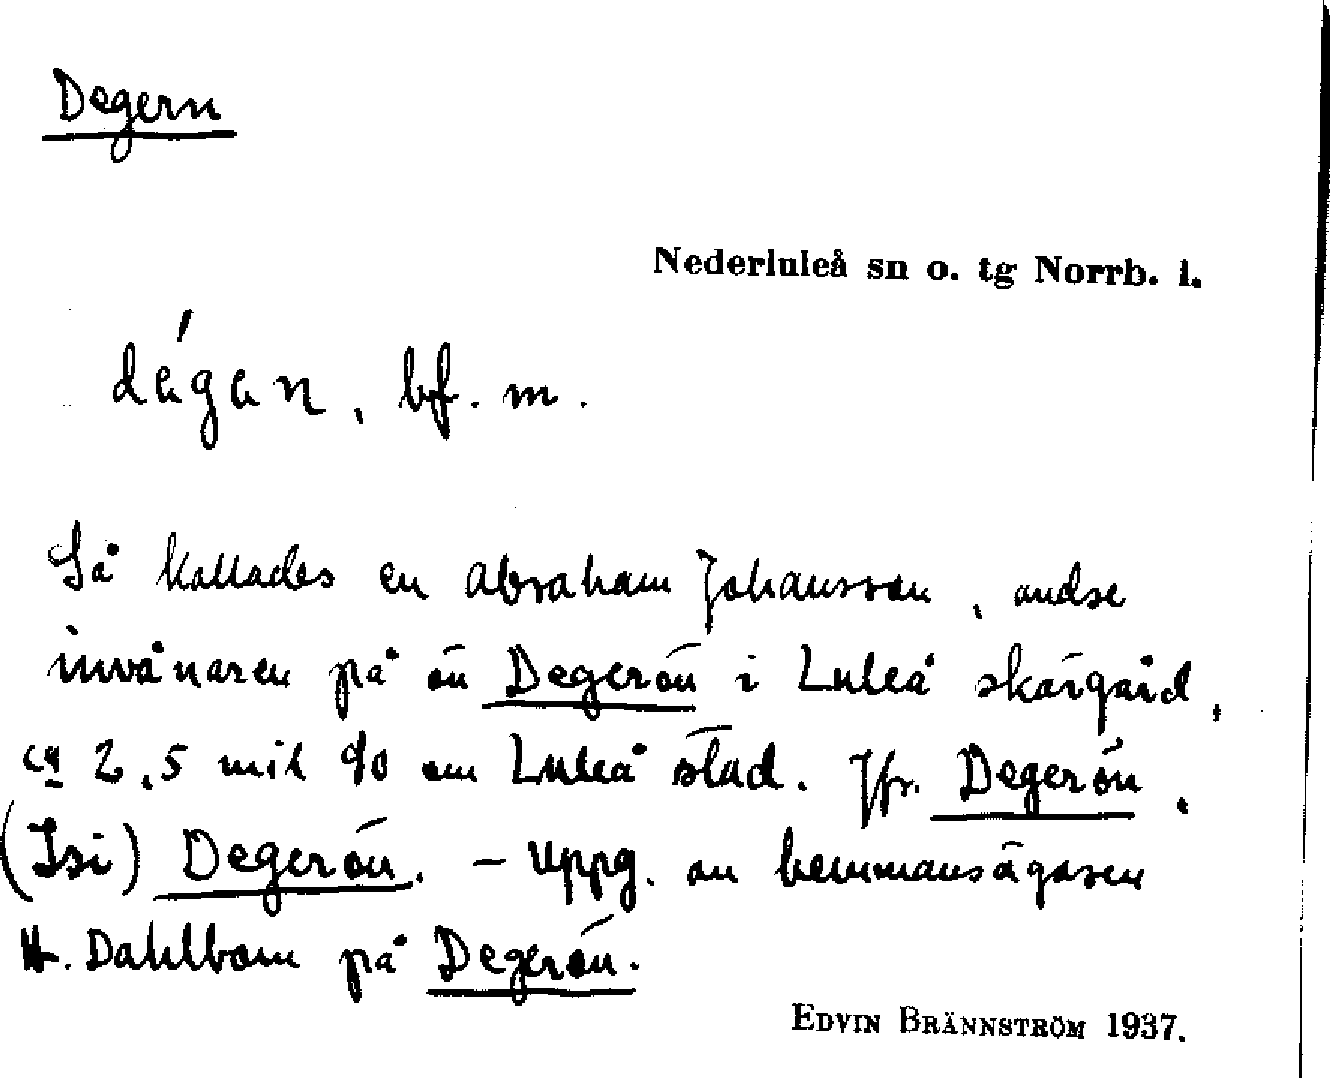 Degern
Nederluleå sn o. tg Norrb. l.
dégan, bf. m.
Så kallades en Abraham Johansson, andre
invånaren på ön Degerön i Luleå skärgård,
ca 2,5 mil so om Luleå stad. Jfr. Degerön,
(Isi) Degerön. - Uppg. av hemmansägaren
H. Dahlbom på Degerön.
EDVIN BRÄNNSTRÖM 1937.